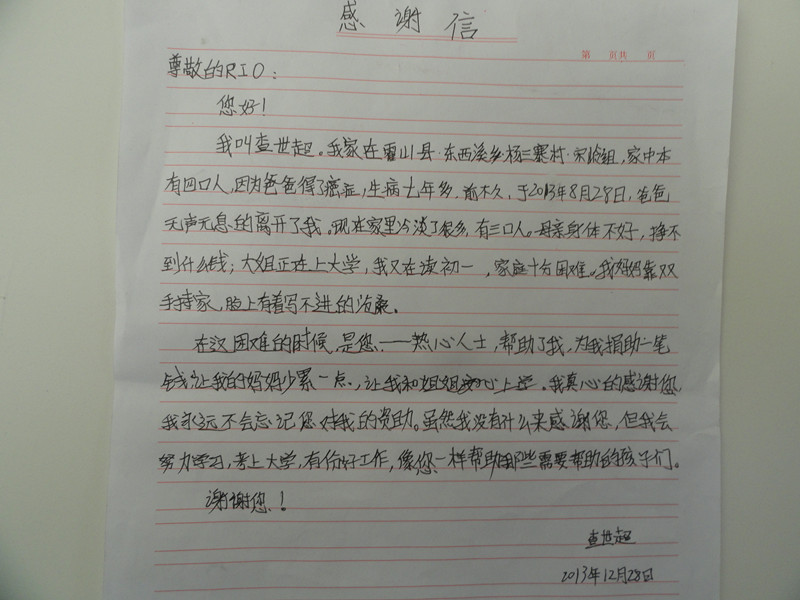 感谢信
第 页共 页
尊敬的RIO:
您好!
我叫查世超。我家在霍山县·东西溪乡·杨三寨村·宋冲组,家中本
有四口人,因为爸爸得了癌症,生病七年多,前不久,于2013年8月28日,爸爸
无声无息的离开了我。现在家里冷淡了很多,有三口人。母亲身体不好,挣不
到什么钱;大姐正在上大学,我又在读初一,家庭十分困难。我妈妈靠双
手持家,脸上有着写不进的沧桑。
在这困难的时候,是您——热心人士,帮助了我,为我捐助一笔
钱让我的妈妈少累一点,让我和姐姐安心上学。我真心的感谢您
我永远不会忘记您对我的资助。虽然我没有什么来感谢您,但我会
努力学习,考上大学,有份好工作,像您一样帮助那些需要帮助的孩子们。
谢谢您!
查世超
2013年12月28日